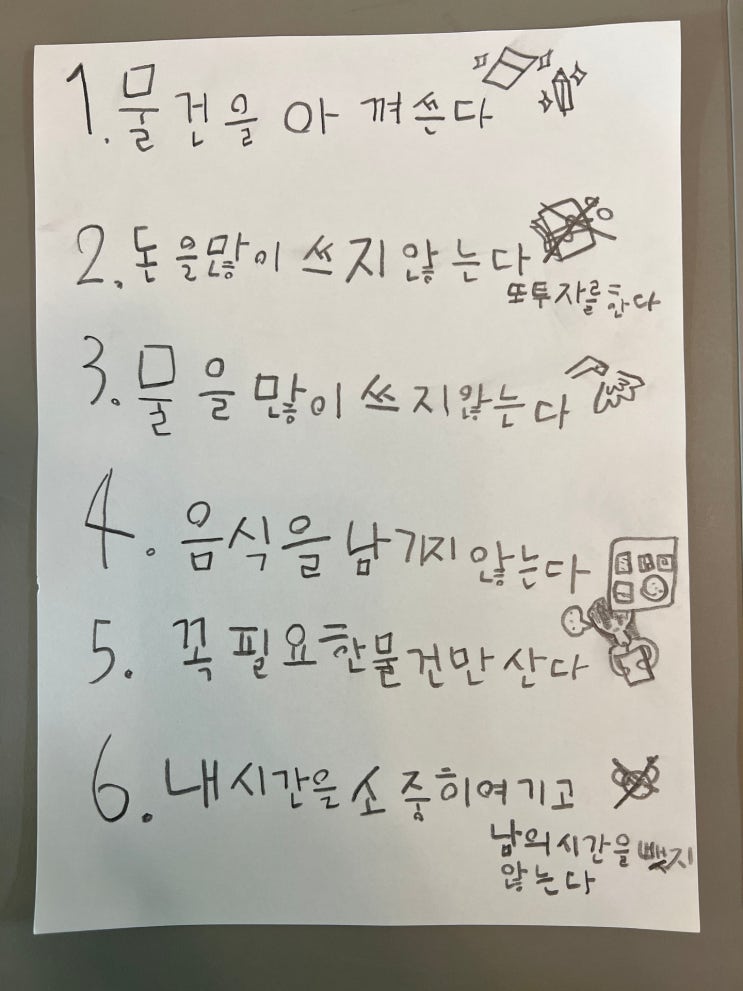 1. 물건을 아껴쓴다
2. 돈을많이 쓰지 않는다
또투자를한다
3. 물을많이쓰지않는다
4. 음식을남기지 않는다
5. 꼭필요한물건만산다
6. 내시간을소중히여기고
남의시간을뺏지
않는다